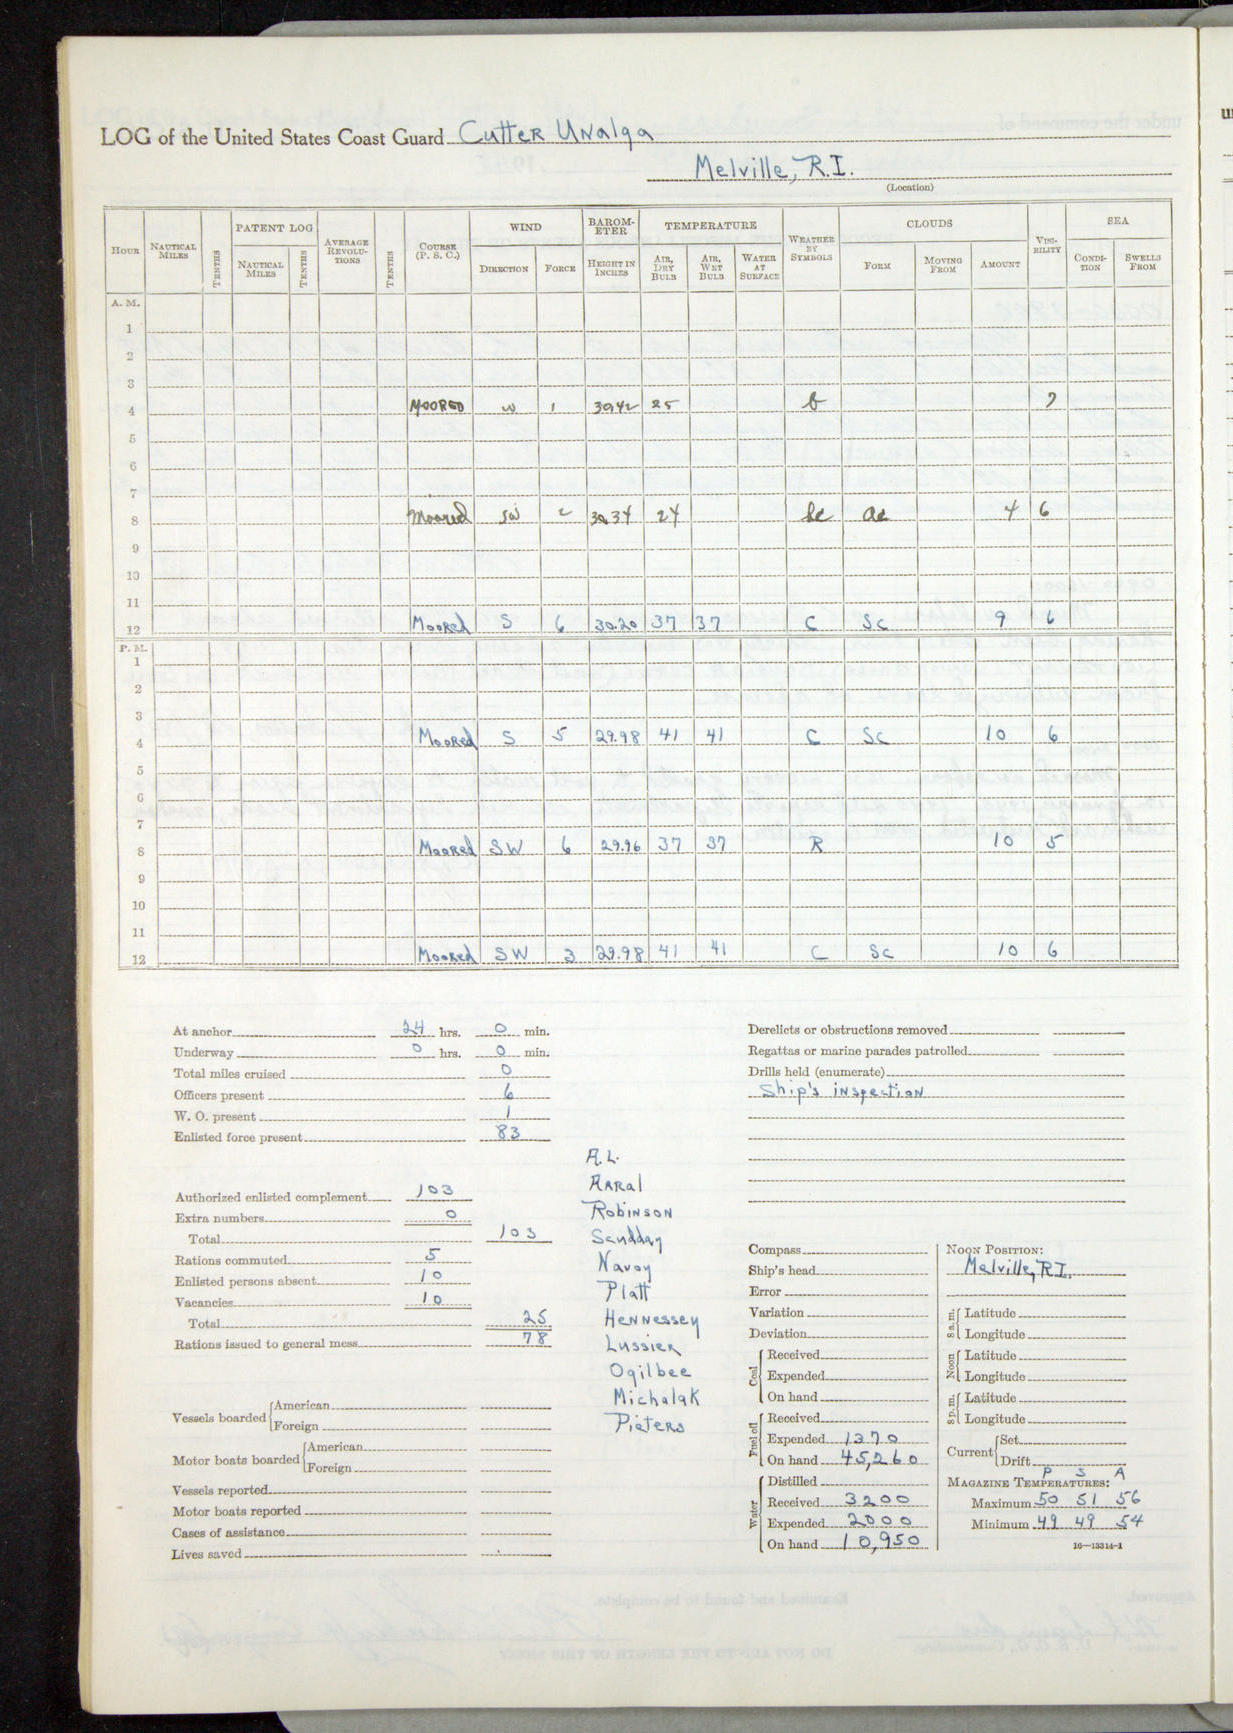 LOG of the United States Coast Guard Cutter Unalga
Melville, R.I.
(Location)
HOUR NAUTICAL MILES TENTHS PATENT LOG NAUTICAL MILES TENTHS AVERAGE REVOLU-TIONS TENTHS COURSE (P. S. C.) WIND DIRECTION FORCE BAROM-ETER HEIGHT IN INCHES TEMPERATURE AIR, DRY BULB AIR, WET BULB WATER AT SURFACE WEATHER BY SYMBOLS CLOUDS FORM MOVING FROM AMOUNT VISI-BILITY SEA CONDI-TION SWELLS FROM
A. M.
1
2
3
4 Moored W 1 30.42 25 b 7
5
6
7
8 Moored SW 2 30.34 24 bc ac 4 6
9
10
11
12 Moored S 6 30.20 37 37 C Sc 9 6
P. M.
1
2
3
4 Moored S 5 29.98 41 41 C Sc 10 6
5
6
7
8 Moored SW 6 29.96 37 37 R 10 5
9
10
11
12 Moored SW 3 29.98 41 41 C Sc 10 6
At anchor 24 hrs. 0 min.
Underway 0 hrs. 0 min.
Total miles cruised 0
Officers present 6
W. O. present 1
Enlisted force present 83
Authorized enlisted complement 103
Extra numbers 0
Total 103
Rations commuted 5
Enlisted persons absent 10
Vacancies 10
Total 25
Rations issued to general mess 78
Vessels boarded American
Foreign
Motor boats boarded American
Foreign
Vessels reported
Motor boats reported
Cases of assistance
Lives saved
A.L.
Arral
Robinson
Sandday
Navoy
Platt
Hennessey
Lussier
Ogilbee
Michalak
Pieters
Derelicts or obstructions removed
Regattas or marine parades patrolled
Drills held (enumerate)
Ship's inspection
Compass
Ship's head
Error
Variation
Deviation
Coal Received
Expended
On hand
Fuel oil Received
Expended 1370
On hand 45,260
Water Distilled
Received 3200
Expended 2000
On hand 10,950
NOON POSITION:
Melville, R.I.
8 a.m. Latitude
Longitude
Noon Latitude
Longitude
8 p.m. Latitude
Longitude
Current Set
Drift
P S A
MAGAZINE TEMPERATURES:
Maximum 50 51 56
Minimum 49 49 54
16—13314-1